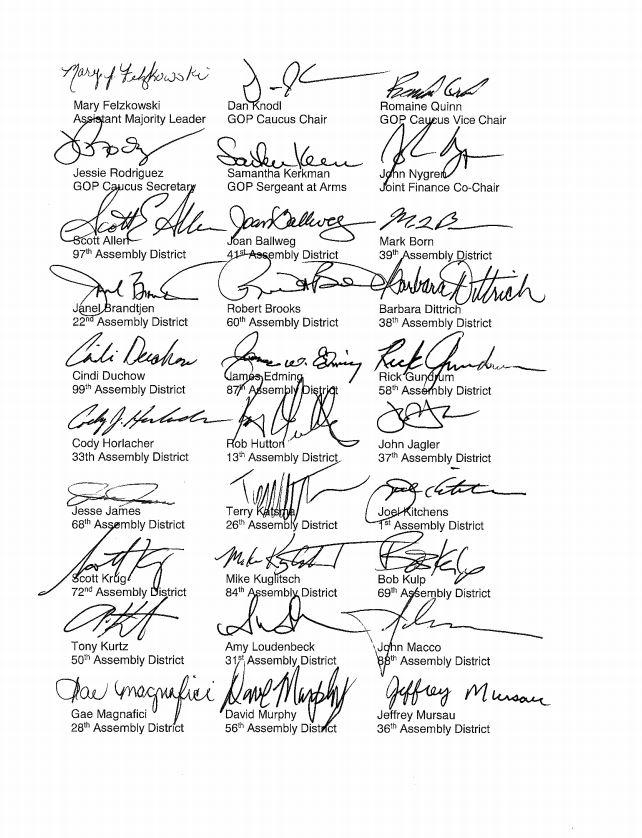 Mary J Felzkowski
Mary Felzkowski Dan Knodl Romaine Quinn
Assistant Majority Leader GOP Caucus Chair GOP Caucus Vice Chair
Jessie Rodriguez Samantha Kerkman John Nygren
GOP Caucus Secretary GOP Sergeant at Arms Joint Finance Co-Chair
Scott E Allen Joan Ballweg
Scott Allen Joan Ballweg Mark Born
97th Assembly District 41st Assembly District 39th Assembly District
Barbara Dittrich
Janel Brandtjen Robert Brooks Barbara Dittrich
22nd Assembly District 60th Assembly District 38th Assembly District
Cindi Duchow James W. Edming Rick Gundrum
Cindi Duchow James Edming Rick Gundrum
99th Assembly District 87th Assembly District 58th Assembly District
Cody J. Horlacher
Cody Horlacher Rob Hutton John Jagler
33th Assembly District 13th Assembly District 37th Assembly District
Jesse James Terry Katsma Joel Kitchens
68th Assembly District 26th Assembly District 1st Assembly District
Scott Krug Mike Kuglitsch Bob Kulp
72nd Assembly District 84th Assembly District 69th Assembly District
Tony Kurtz Amy Loudenbeck John Macco
50th Assembly District 31st Assembly District 88th Assembly District
Gae Magnafici Dave Murphy Jeffrey Mursau
Gae Magnafici David Murphy Jeffrey Mursau
28th Assembly District 56th Assembly District 36th Assembly District